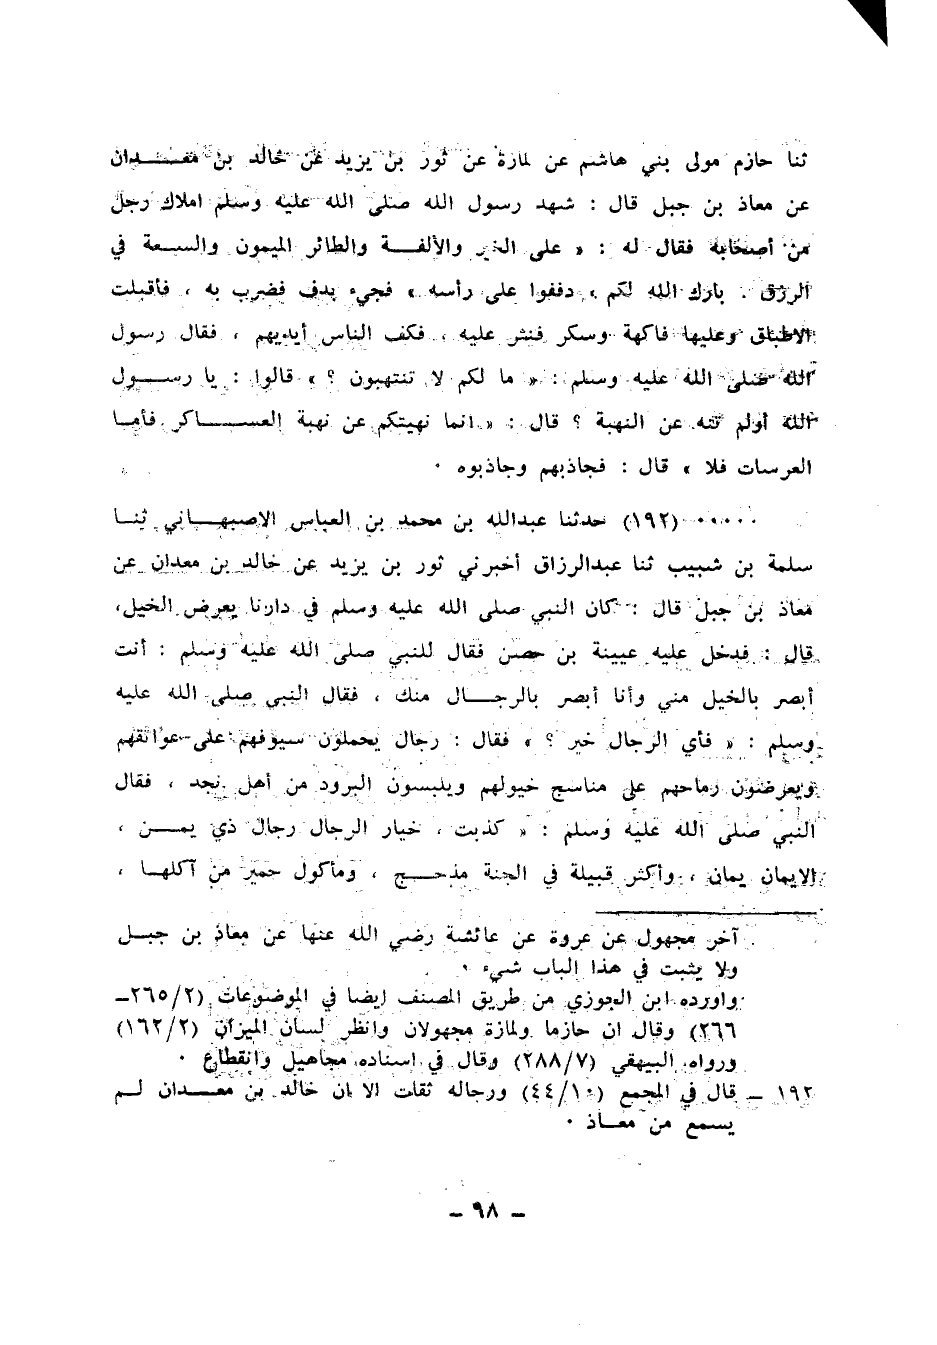 ثنا حازم مولى بني هاشم عن لمازة عن ثور بن يزيد عن خالد بن معــدان
عن معاذ بن جبل قال : شهد رسول الله صلى الله عليه وسلم املاك رجل
من أصحابه فقال له : « على الخير والألفــة والطائر الميمون والسعة في
الرزق . بارك الله لكم ، دففوا على رأسه » فجيء بدف فضرب به ، فأقبلت
الاطباق وعليها فاكهة وسكر فنثر عليه ، فكف الناس أيديهم ، فقال رسول
الله صلى الله عليه وسلم : « ما لكم لا تنتهبون ؟ » قالوا : يا رســول
الله أولم تنه عن النهبة ؟ قال : « انما نهيتكم عن نهبة العســاكر فأمـا
العرسات فلا » قال : فجاذبهم وجاذبوه .
..... (١٩٢) حدثنا عبدالله بن محمد بن العباس الاصبهــاني ثنـا
سلمة بن شبيب ثنا عبدالرزاق أخبرني ثور بن يزيد عن خالد بن معدان عن
معاذ بن جبل قال : كان النبي صلى الله عليه وسلم في دارنا يعرض الخيل،
قال : فدخل عليه عيينة بن حصن فقال للنبي صلى الله عليه وسلم : أنت
أبصر بالخيل مني وأنا أبصر بالرجــال منك ، فقال النبي صلى الله عليه
وسلم : « فأي الرجال خير ؟ » فقال : رجال يحملون سيوفهم على عواتقهم
ويعرضون رماحهم على مناسج خيولهم ويلبسون البرود من أهل نجد ، فقال
النبي صلى الله عليه وسلم : « كذبت ، خيار الرجال رجال ذي يمــن ،
الايمان يمان ، وأكثر قبيلة في الجنة مذحــج ، ومأكول حمير من آكلهـا ،
آخر مجهول عن عروة عن عائشة رضي الله عنها عن معاذ بن جبــل
ولا يثبت في هذا الباب شيء .
واورده ابن الجوزي من طريق المصنف ايضا في الموضوعات (٢/٢٦٥ـ
٢٦٦) وقال ان حازما ولمازة مجهولان وانظر لسان الميزان (٢/١٦٢)
ورواه البيهقي (٧/٢٨٨) وقال في اسناده مجاهيل وانقطاع .
١٩٢ ـ قال في المجمع (١٠/٤٤) ورجاله ثقات الا ان خالد بن معــدان لــم
يسمع من معــاذ .
ـ ٩٨ ـ